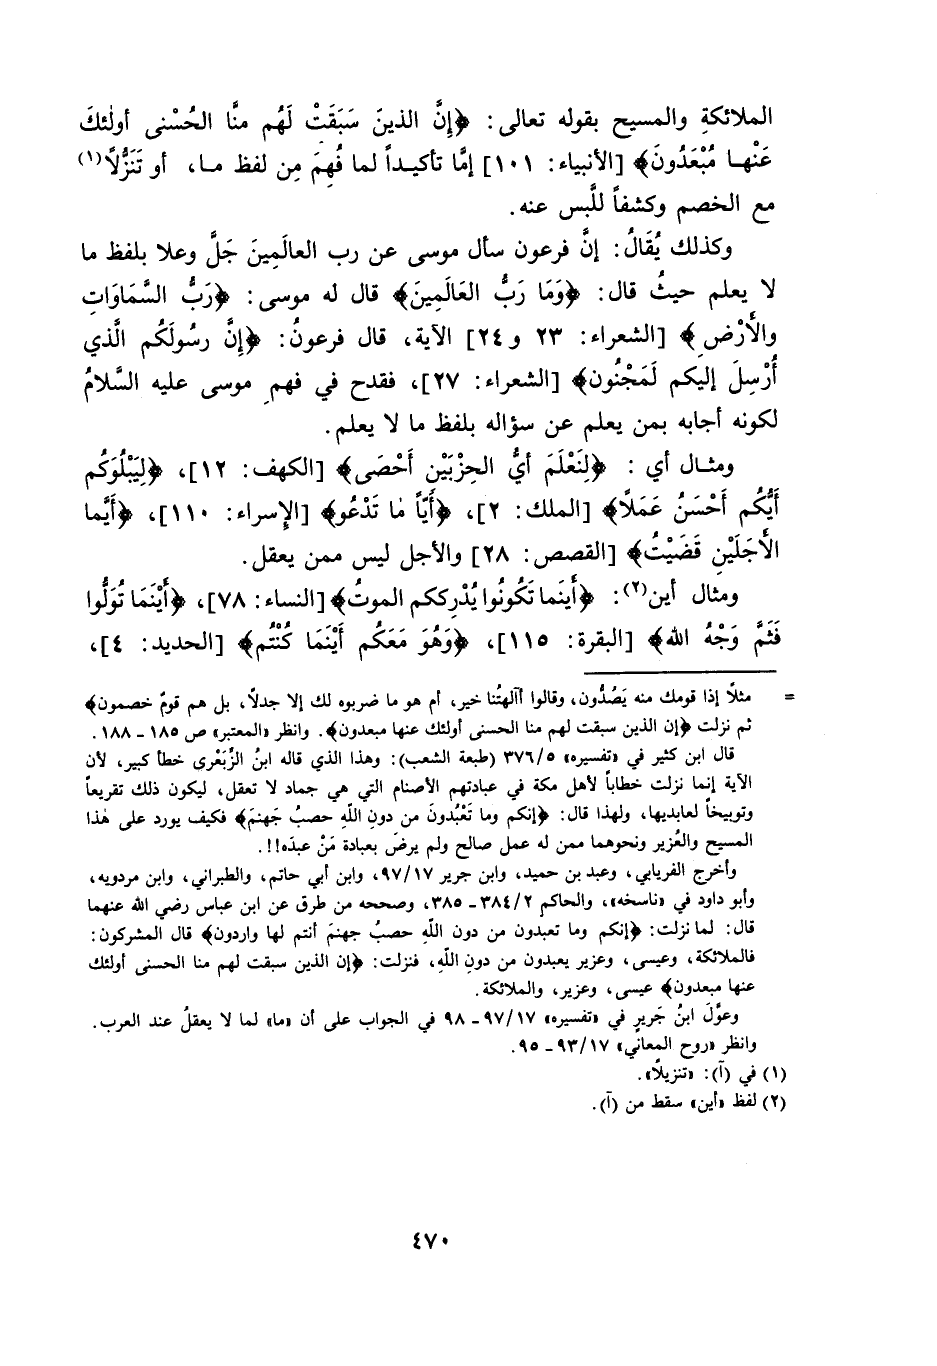 الملائكةِ والمسيح بقوله تعالى: ﴿إنَّ الذينَ سَبَقَتْ لَهُم منَّا الحُسْنى أولٰئكَ
عَنْهـا مُبْعَدُونَ﴾ [الأنبياء: ١٠١] إمَّا تأكيـداً لما فُهِمَ مِن لفظ مـا، أو تَنَزُّلاً(١)
مع الخصم وكشفاً للَّبس عنه.
وكذلك يُقَالُ: إنَّ فرعون سأل موسى عن رب العالَمِينَ جَلَّ وعلا بلفظ ما
لا يعلم حيثُ قال: ﴿وَمَا رَبُّ العَالَمِينَ﴾ قال له موسى: ﴿رَبُّ السَّمَاوَاتِ
والأَرْضِ﴾ [الشعراء: ٢٣ و٢٤] الآية، قال فرعونُ: ﴿إنَّ رسُولَكُم الَّذي
أُرْسِلَ إليكم لَمَجْنُون﴾ [الشعراء: ٢٧]، فقدح في فهمِ موسى عليه السَّلامُ
لكونه أجابه بمن يعلم عن سؤاله بلفظ ما لا يعلم.
ومثـال أي: ﴿لِنَعْلَمَ أيُّ الحِزْبَيْن أَحْصَى﴾ [الكهف: ١٢]، ﴿لِيَبْلُوَكُم
أَيُّكُم أَحْسَنُ عَمَلاً﴾ [الملك: ٢]، ﴿أَيّاً مٰا تَدْعُو﴾ [الإسراء: ١١٠]، ﴿أَيَّما
الأَجَلَيْنِ قَضَيْتُ﴾ [القصص: ٢٨] والأجل ليس ممن يعقل.
ومثال أين(٢): ﴿أَينَما تَكُونُوا يُدْرِككم الموتُ﴾ [النساء: ٧٨]، ﴿أَيْنَمَا تُوَلُّوا
فَثَمَّ وَجْهُ الله﴾ [البقرة: ١١٥]، ﴿وَهُوَ مَعَكُم أَيْنَمَا كُنْتُم﴾ [الحديد: ٤]،
= مثلاً إذا قومك منه يَصُدُّون، وقالوا أآلهتُنا خير، أم هو ما ضربوه لك إلا جدلاً، بل هم قومٌ خصمون﴾
ثم نزلت ﴿إن الذين سبقت لهم منا الحسنى أولئك عنها مبعدون﴾. وانظر «المعتبر» ص ١٨٥ - ١٨٨.
قال ابن كثير في «تفسيره» ٣٧٦/٥ (طبعة الشعب): وهذا الذي قاله ابنُ الزِّبَعْرى خطأ كبير، لأن
الآية إنما نزلت خطاباً لأهل مكة في عبادتهم الأصنام التي هي جماد لا تعقل، ليكون ذلك تقريعاً
وتوبيخاً لعابديها، ولهذا قال: ﴿إنكم وما تَعْبُدونَ من دونِ اللّهِ حصبُ جَهنمَ﴾ فكيف يورد على هٰذا
المسيح والعُزير ونحوهما ممن له عمل صالح ولم يرضَ بعبادة مَنْ عبدَه!!.
وأخرج الفريابي، وعبد بن حميد، وابن جرير ٩٧/١٧، وابن أبي حاتم، والطبراني، وابن مردويه،
وأبو داود في «ناسخه»، والحاكم ٣٨٤/٢ - ٣٨٥، وصححه من طرق عن ابن عباس رضي الله عنهما
قال: لما نزلت: ﴿إنكم وما تعبدون من دون اللّهِ حصبُ جهنمَ أنتم لها واردون﴾ قال المشركون:
فالملائكة، وعيسى، وعزير يعبدون من دونِ اللّهِ، فنزلت: ﴿إن الذين سبقت لهم منا الحسنى أولئك
عنها مبعدون﴾ عيسى، وعزير، والملائكة.
وعوَّلَ ابنُ جَريرٍ في «تفسيره» ٩٧/١٧ - ٩٨ في الجواب على أن «ما» لما لا يعقلُ عند العرب.
وانظر «روح المعاني» ٩٣/١٧ - ٩٥.
(١) في (أ): «تنزيلاً».
(٢) لفظ «أين» سقط من (أ).
٤٧٠